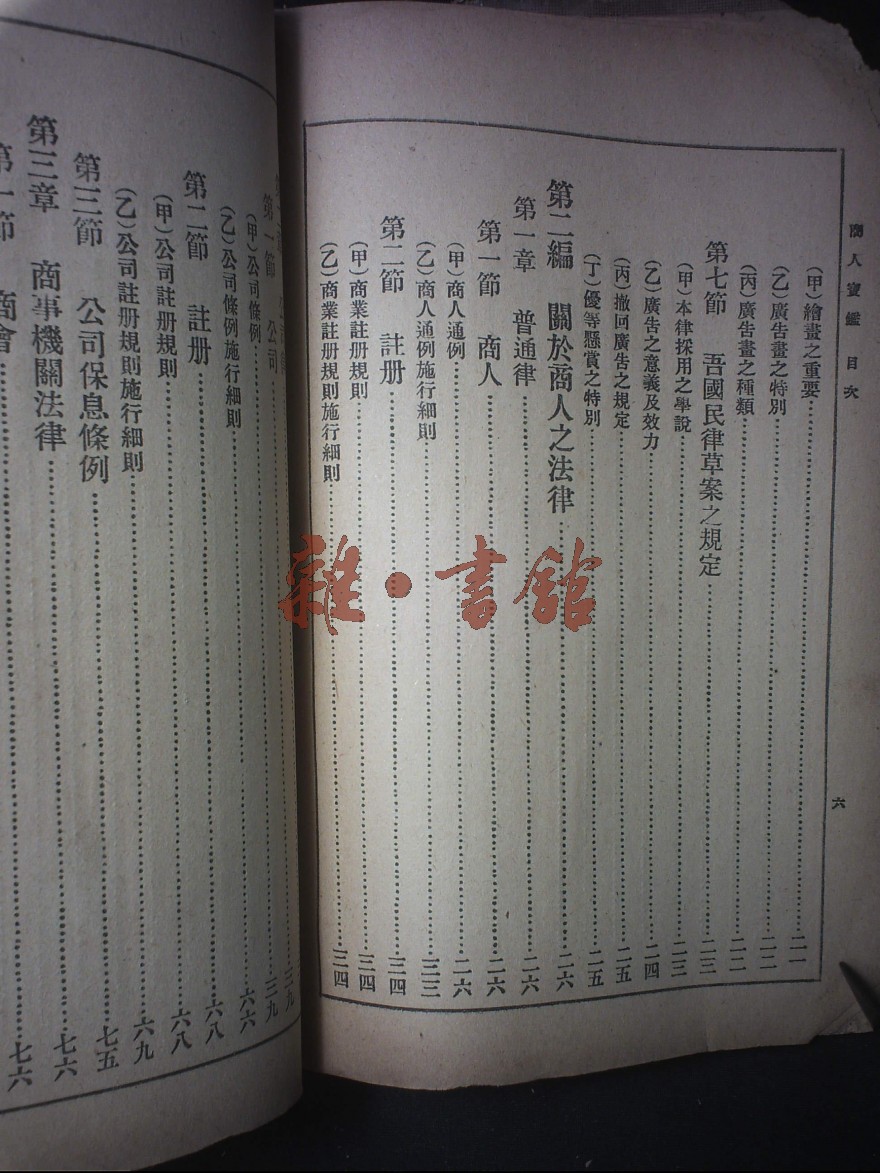 商人寶鑑 目次
六
(甲)繪畫之重要……二一
(乙)廣告畫之特別……二二
(丙)廣告畫之種類……二二
第七節 吾國民律草案之規定……二三
(甲)本律採用之學說……二三
(乙)廣告之意義及效力……二四
(丙)撤回廣告之規定……二五
(丁)優等懸賞之特別……二五
第二編 關於商人之法律……二六
第一章 普通律……二六
第一節 商人……二六
(甲)商人通例……二六
(乙)商人通例施行細則……三三
第二節 註册……三四
(甲)商業註册規則……三四
(乙)商業註册規則施行細則……三四
三九
第一節 公司……三九
(甲)公司條例……六六
(乙)公司條例施行細則……六六
第二節 註册……六八
(甲)公司註册規則……六八
(乙)公司註册規則施行細則……六九
第三節 公司保息條例……七五
第三章 商事機關法律……七六
第一節 商會……七六
雜·書館